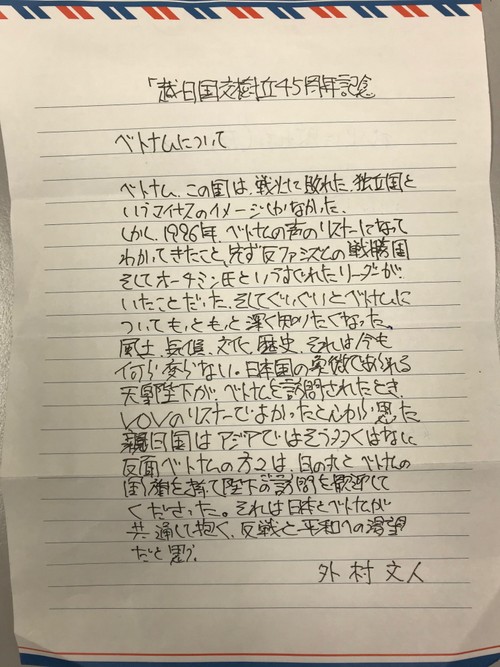 「越日国交樹立45周年記念
ベトナムについて
ベトナム、この国は、戦火に敗れた、独立国と
いうマイナスのイメージしかなかった。
しかし、1996年、ベトナムの声のリスナーになって
わかってきたこと、先ず反ファシズムとの戦勝国
そしてホーチミン氏というすぐれたリーダーが
いたことだった。そしてぐいぐいとベトナムに
ついてもっともっと深く知りたくなった。
風土、気候、文化、歴史、それは今も
何ら変らない。日本国の象徴であられる
天皇陛下が、ベトナムを訪問されたとき
VOVのリスナーでよかったと心から思った
親日国はアジアではそう多くはない
反面ベトナムの方々は、日の丸とベトナムの
国旗を捧て陛下の訪問を歓迎して
くださった。それは日本とベトナムが
共通して抱く、反戦と平和への渇望
だと思う。
外村文人